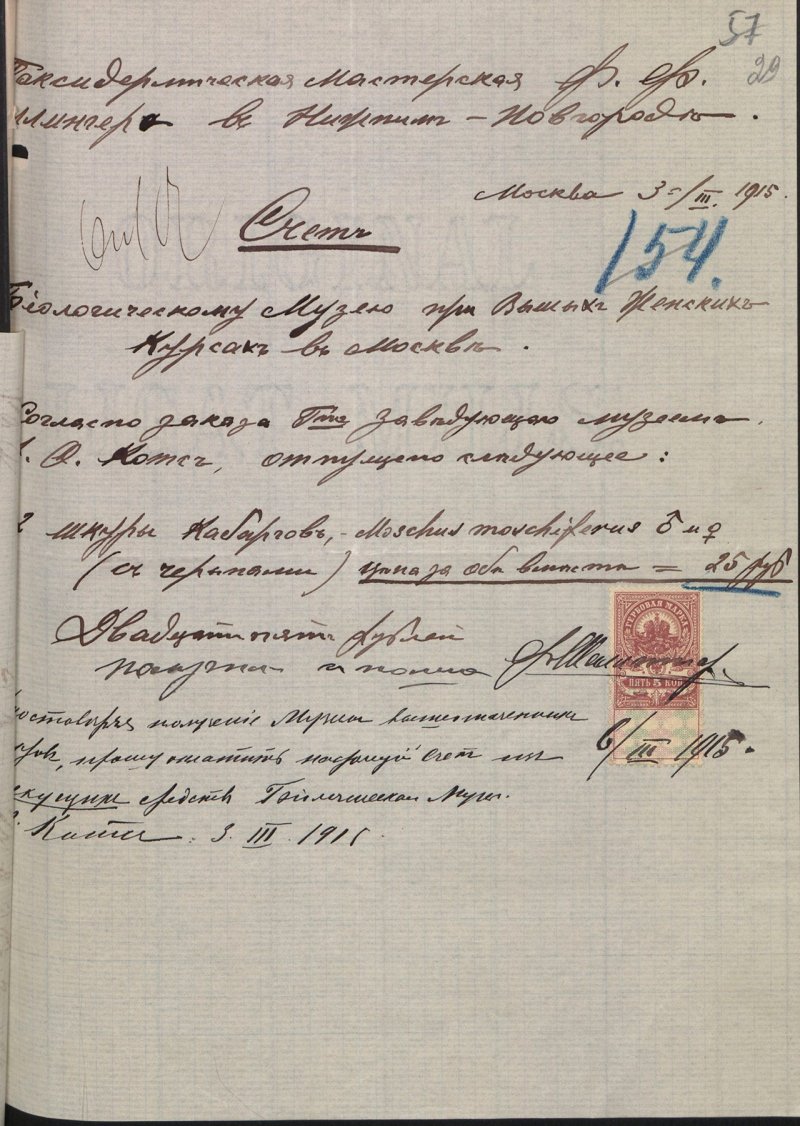 57
29
Таксидермическая мастерская Ф. Ф.
въ Нижнемъ-Новгородѣ.
Москва 3/III. 1915.
Счетъ
154.
Біологическому Музею при Высшихъ Женскихъ
Курсахъ въ Москвѣ.
Согласно заказа Гна Завѣдующаго музеемъ
А. Ѳ. Котсъ, отпущено слѣдующее:
2 шкуры Кабарговъ, - Moschus moschiferus ♂ и ♀
(съ черепами) цѣна за оба вмѣстѣ = 25 руб
Двадцать пять рублей
получилъ сполна
ГЕРБОВАЯ МАРКА
ПЯТЬ 5 КОП
6/III 1915.
получение Музеем вышеозначенных
прошу оплатить настоящий Счет из
средств Биологическаго Музея.
Котс. 3. III. 1915.